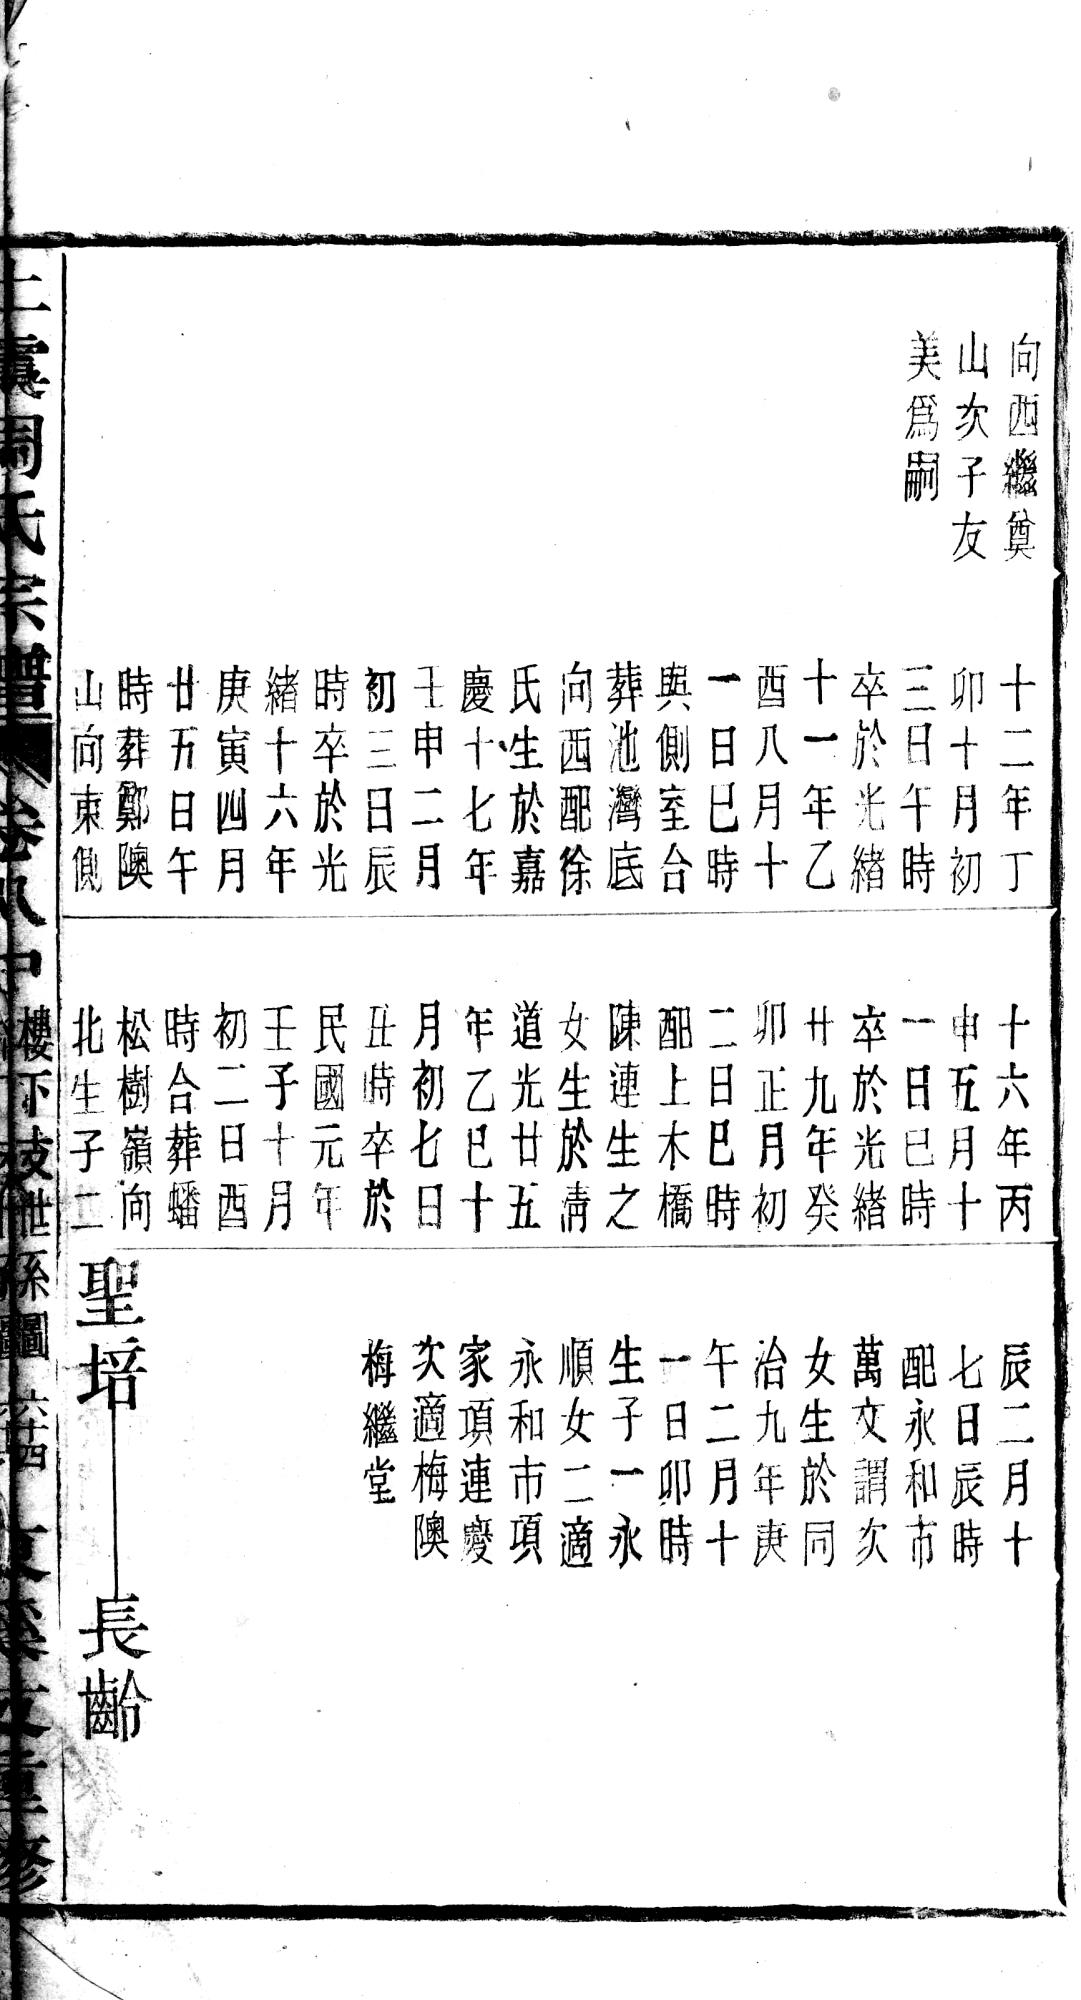 向西繼奠
山次子友
美爲嗣
十二年丁
卯十月初
三日午時
卒於光緒
十一年乙
酉八月十
一日巳時
與側室合
葬池灣底
向西配徐
氏生於嘉
慶十七年
壬申二月
初三日辰
時卒於光
緒十六年
庚寅四月
廿五日午
時葬鄭隩
山向東側
十六年丙
申五月十
一日巳時
卒於光緒
廿九年癸
卯正月初
二日巳時
配上木橋
陳連生之
女生於清
道光廿五
年乙巳十
月初七日
丑時卒於
民國元年
壬子十月
初二日酉
時合葬蟠
松樹嶺向
北生子二
辰二月十
七日辰時
配永和市
萬文謂次
女生於同
治九年庚
午二月十
一日卯時
生子一永
順女二適
永和市項
家項連慶
次適梅隩
梅繼堂
聖培
長齡
上虞周氏宗譜 卷八中
樓下枝世系圖 六十四